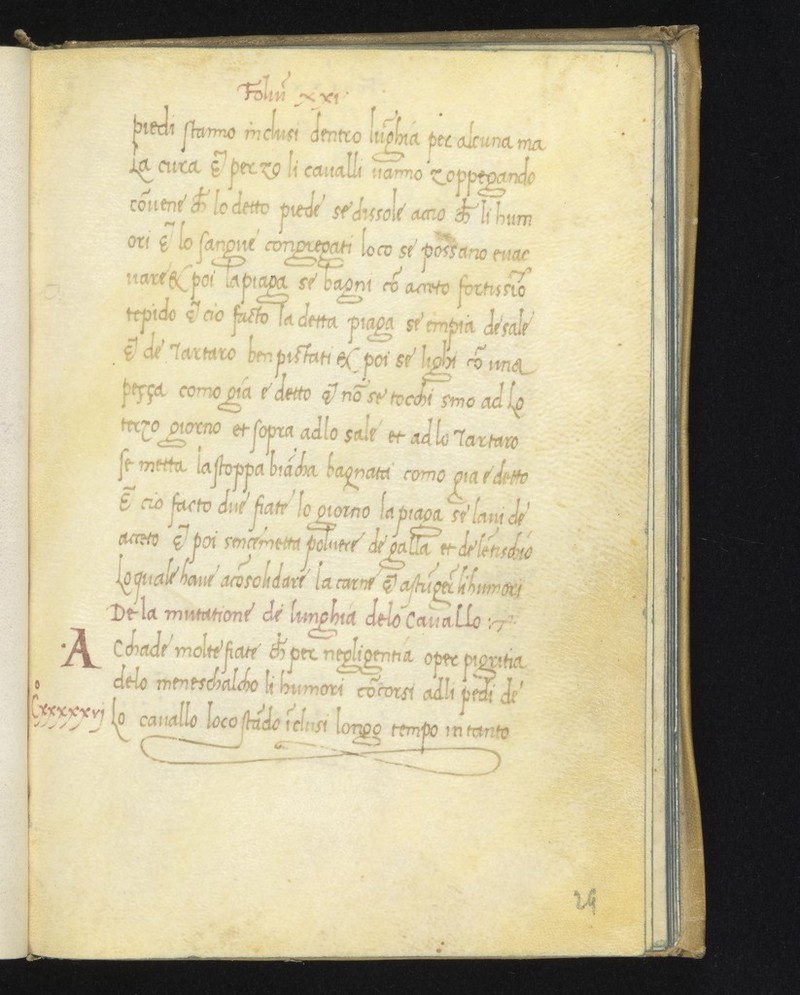 Foliu͂ xxi
piedi stanno inclusi dentro lu͂ghia per alcuna ma
La cura & per zo li cavalli vanno zoppegando
co͂vene ch͂ lo detto piede se dissole accio ch͂ li hum
ori & lo sangue congregati loco se possano evac
vare & poi la piaga se bagni co͂ aceto fortissi͂o
tepido & cio facto la detta piaga se empia de sale
& de Tartaro ben pistati & poi se lighi co͂ una
peçça como gia e detto & no͂ se tocchi sino ad Lo
terzo giorno et sopra ad lo sale et ad lo Tartaro
se metta la stoppa bia͂cha bagnata como gia e detto
& cio facto due fiate lo giorno la piaga se lavi de
aceto & poi sence metta polvere de galla et de le͂tischio
Lo quale have aco͂solidare la carne & astri͂ger li humori
De la mutatione de lunghia delo Cavallo
A
Cchade molte fiate ch͂ per negligentia oper pigritia
delo meneschalcho li humori co͂corsi adli pedi de
Co xxxxxvj
Lo cavallo loco sta͂do i͂clusi longo tempo in tanto
29